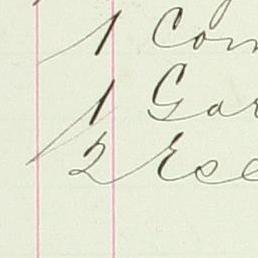 1 Com
1 Gar
2 Esc